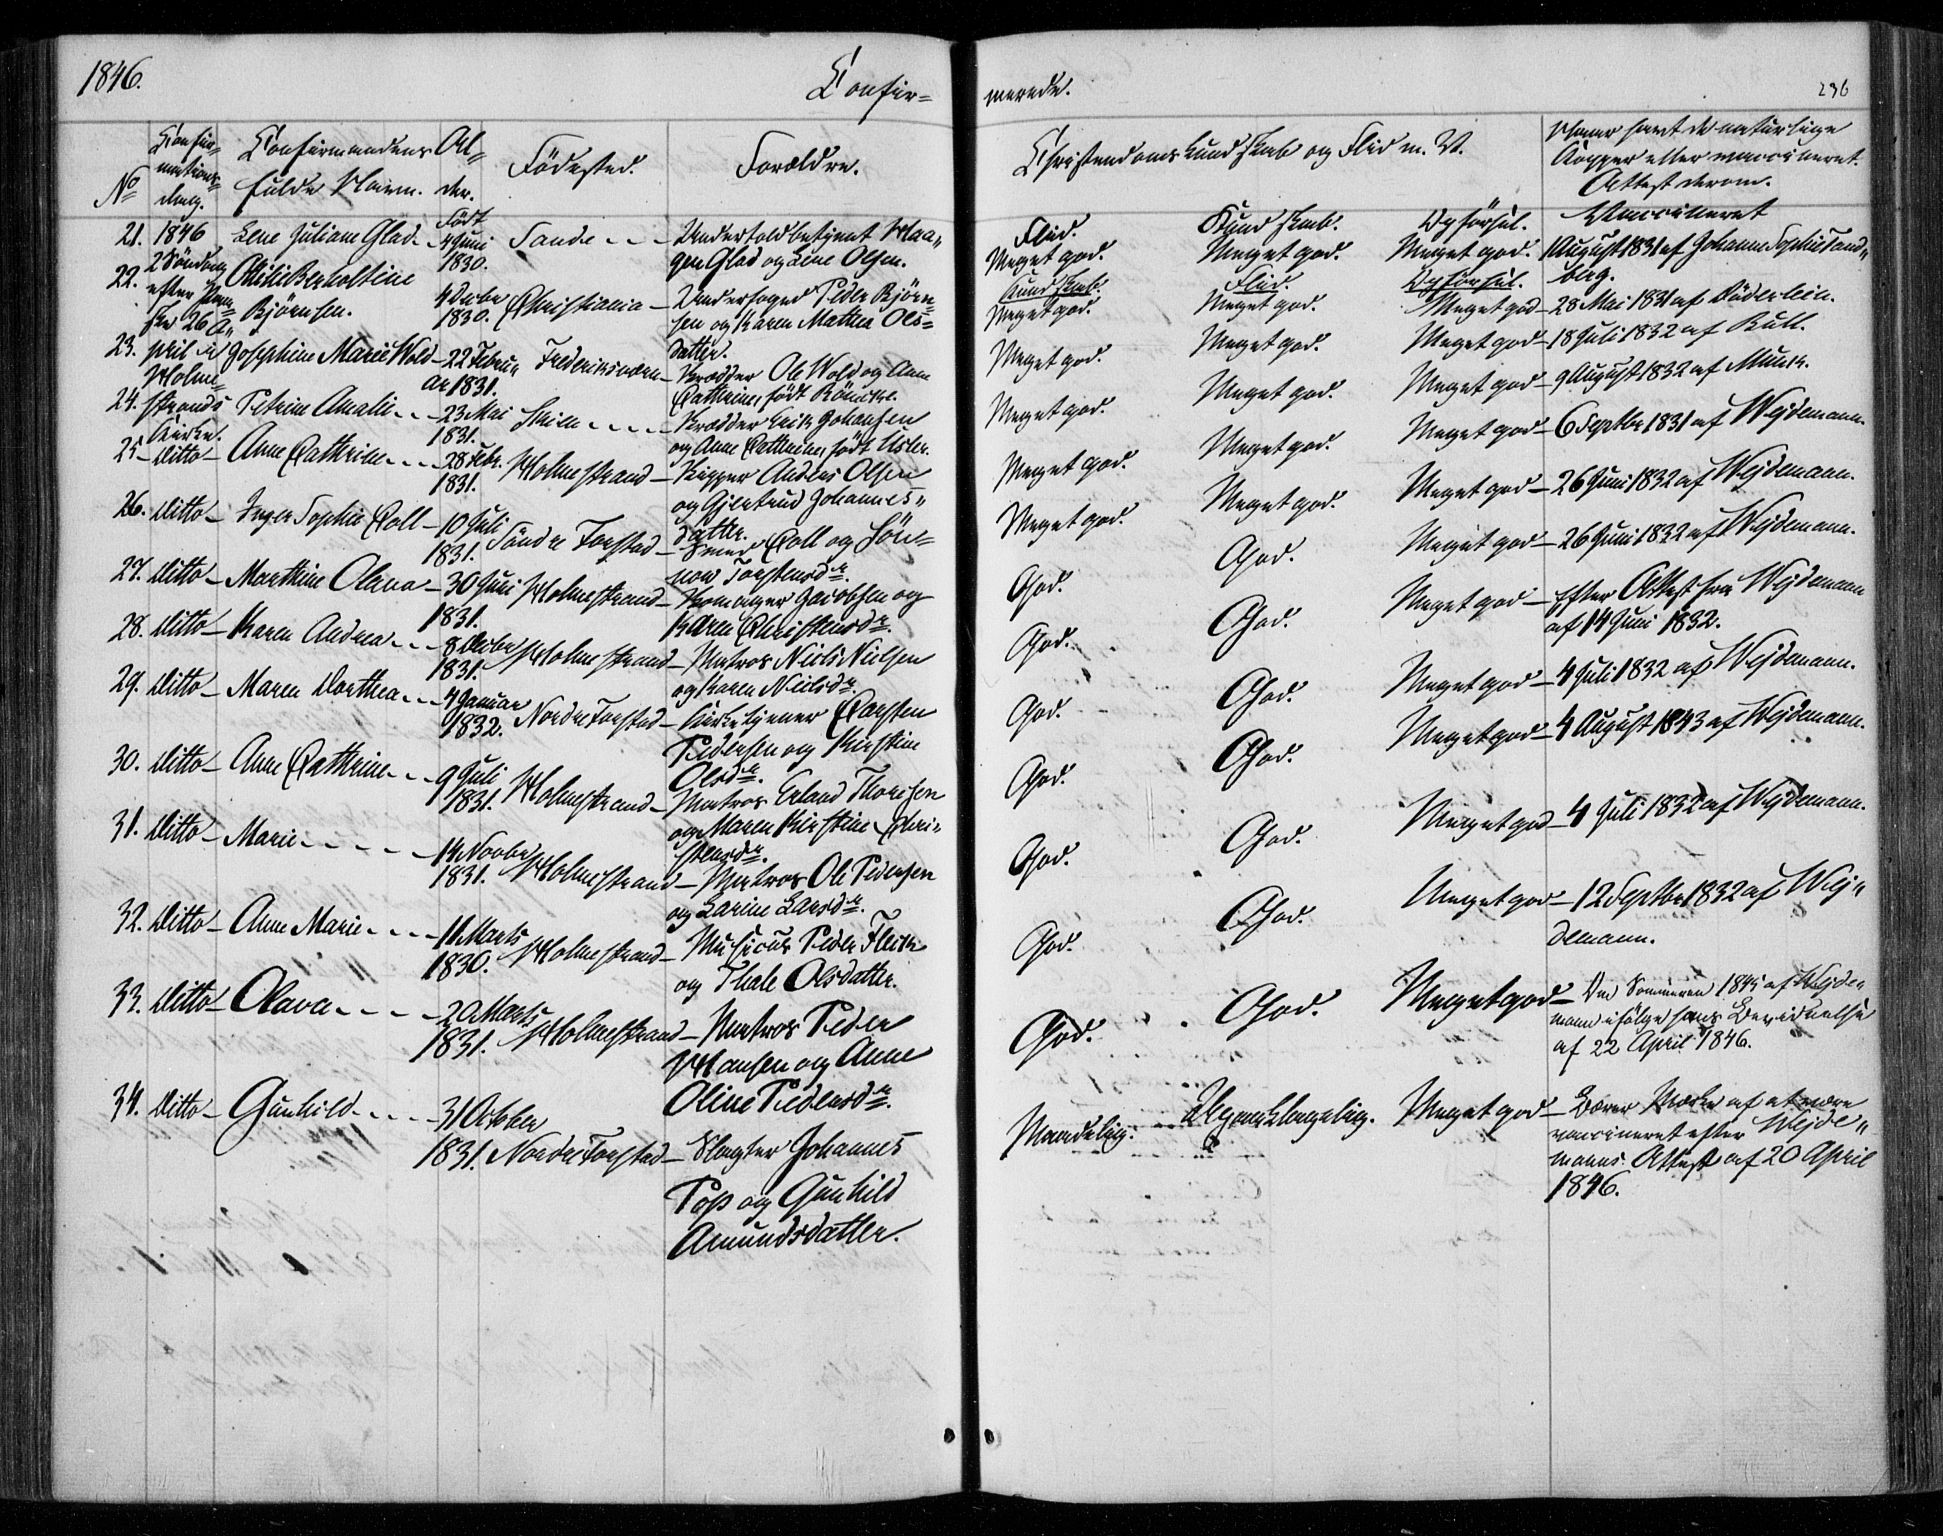 1846.
Confir=
merede.
236
No
Confir=
mations=
dag.
Confirmandens
fulde Navn.
Al=
der.
Födested.
Forældre.
Christendoms Kundskab og Flid m. V.
Naar havt de naturlige
Kopper eller vaccineret.
Attest derom.
21. 1846 Lene Juliane Glad Födt
4 Juni
1830. Sande Undertoldbetjent Haa=
gen Glad og Lene Olsen.
Flid. Kundskab. Opförsel. Vaccineret
Meget god. Meget god. Meget god. 1 August 1831 af Johanne Sophie Sand=
berg.
22. 2 Söndag
efter Paa=
ske 26 A=
pril i
Holme=
strands
Kirke.
Ottilie Berholtine
Björnsen. 4 Decbr
1830. Christiania Underfoged Peder Björn=
sen og Karen Mathea Ols=
datter.
Kundskab. Flid. Opförsel.
Meget god. Meget god. Meget god 28 Mai 1831 af Döderlein.
23. Josephine Marie Wold 22 Februa
ar 1831. Frederiksværn Kræmmer Ole Wold og Anne
Cathrine, födt Rönneke.
Meget god. Meget god. Meget god 18 Juli 1832 af Bull.
24. Petrine Amalie 23 Mai
1831. Skien Kræmmer Erik Johansen
og Anne Cathrine, födt Usler.
Meget god. Meget god. Meget god 9 August 1832 af Munk.
25 Ditto Anne Cathrine 28 Febr.
1831. Holmestrand Skipper Anders Olsen
og Gjertrud Johannes=
datter.
Meget god. Meget god. Meget god 6 Septbr 1831 af Wejdemann.
26. Ditto Inger Sophie Coll 10 Juli
1831. Söndre Forstad Smed Coll og Gön=
nov Torstensdr.
Meget god. Meget god. Meget god 26 Juni 1832 af Wejdemann.
27. Ditto Marthine Olava 30 Juni
1831. Holmestrand Skomager Jacobsen og
Karen Christensdr.
God. God. Meget god 26 Juni 1832 af Wejdemann.
28. Ditto Karen Andrea 8 Decbr
1831. Holmestrand Matros Niels Nielsen
og Karen Nielsdr.
God. God. Meget god Efter Attest fra Wejdemann
af 14 Juni 1832.
29. Ditto Maren Dorthea 4 Januar
1832. Nordre Forstad Kirketjener Carsten
Pedersen og Kirstine
Olsdr.
God. God. Meget god 4 Juli 1832 af Wejdemann.
30. Ditto Anne Cathrine 9 Juli
1831. Holmestrand Matros Erland Thorsen
og Maren Kirstine Chri=
stensdr.
God. God. Meget god 4 August 1843 af Wejdemann.
31. Ditto Marie 14 Novbr
1831. Holmestrand Matros Ole Pedersen
og Larine Larsdr.
God. God. Meget god 4 Juli 1832 af Wejdemann.
32. Ditto Anne Marie 11 Marts
1830. Holmestrand Musicus Peder Fleik
og Thale Olsdatter.
God. God. Meget god 12 Septbr 1832 af Wej=
demann.
33. Ditto Olava 22 Marts
1831. Holmestrand Matros Peder
Hansen og Anne
Oline Pedersdr.
God. God. Meget god Om Sommeren 1845 af Wejde=
mann ifölge hans Bevidnelse
af 22 April 1846.
34. Ditto Gunhild 31 October
1831. Nordre Forstad Slagter Johannes
Pop og Gunhild
Amundsdatter.
Maadelig. Ugunstlangelig. Meget god Bærer Mærke af at være
vaccineret efter Wejde=
manns Attest af 20 April
1846.